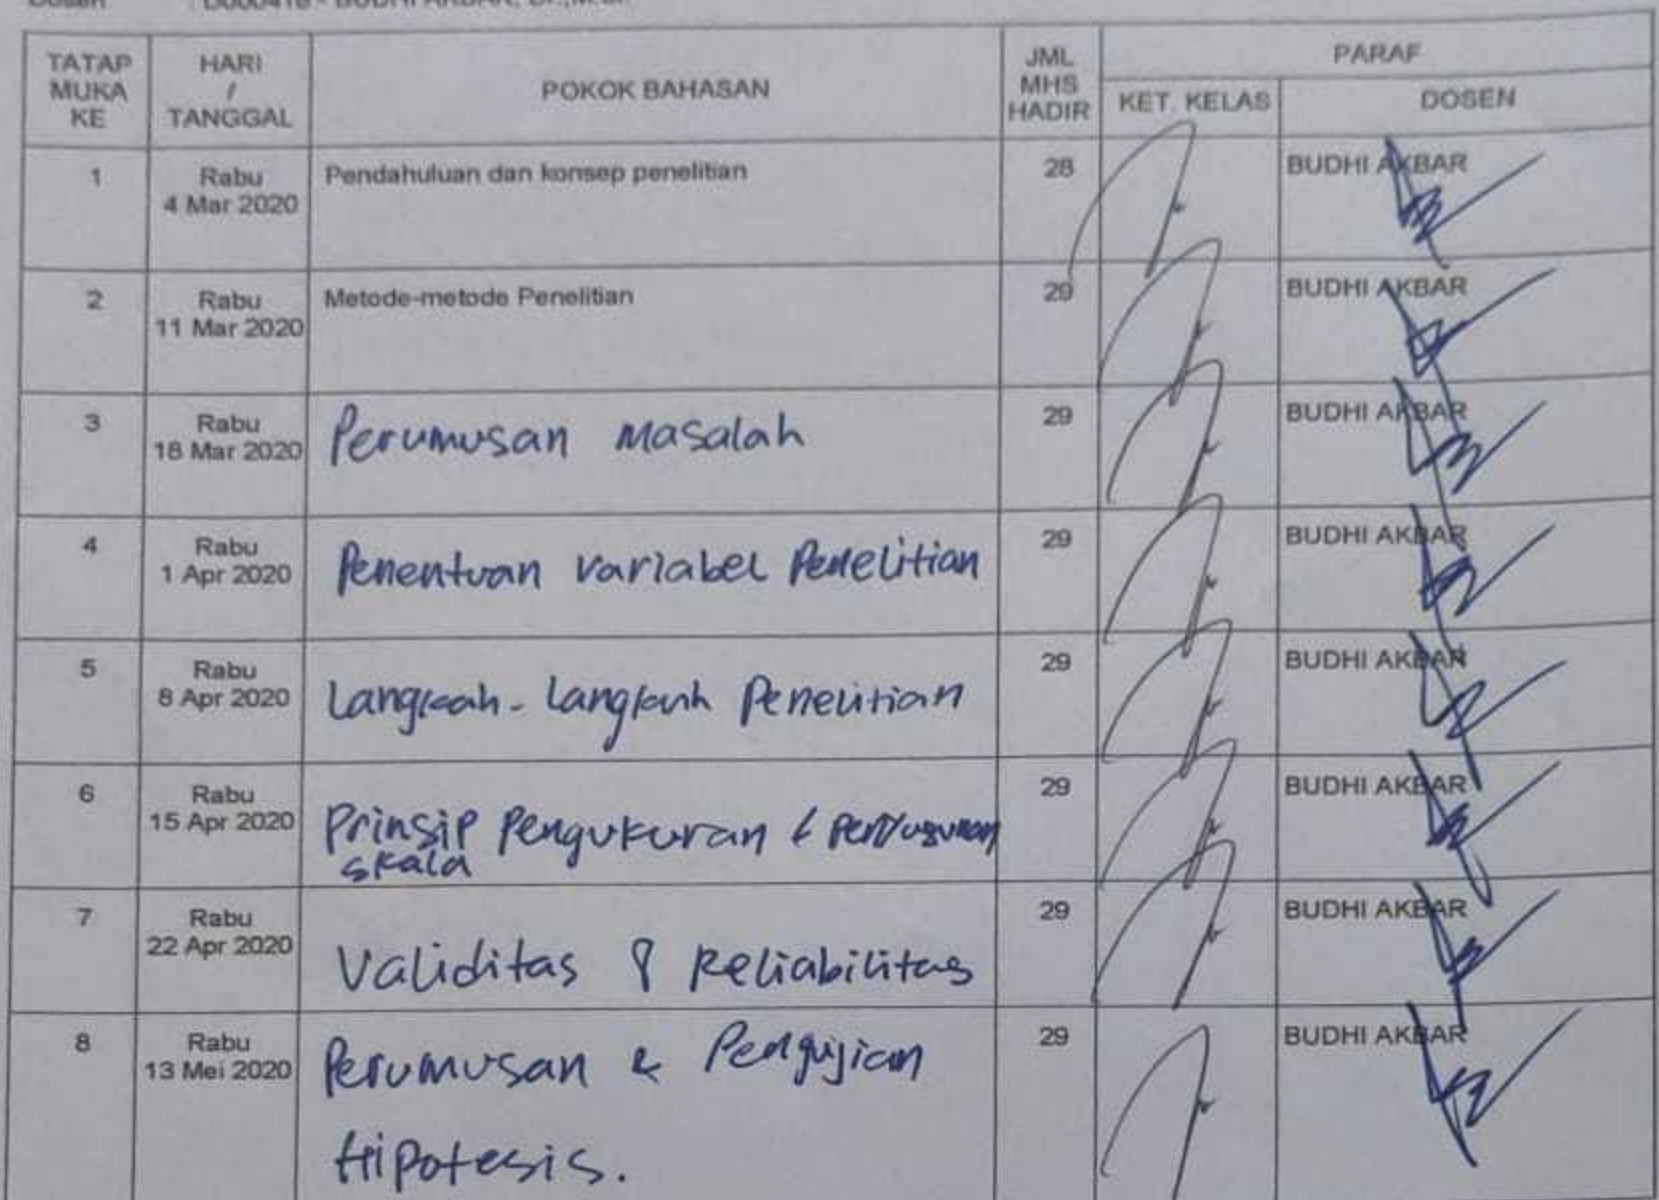 TATAP MUKA KE HARI / TANGGAL POKOK BAHASAN JML MHS HADIR PARAF
KET. KELAS DOSEN
1 Rabu 4 Mar 2020 Pendahuluan dan konsep penelitian 28 BUDHI AKBAR
2 Rabu 11 Mar 2020 Metode-metode Penelitian 29 BUDHI AKBAR
3 Rabu 18 Mar 2020 Perumusan Masalah 29 BUDHI AKBAR
4 Rabu 1 Apr 2020 Penentuan variabel Penelitian 29 BUDHI AKBAR
5 Rabu 8 Apr 2020 Langkah-Langkah Penelitian 29 BUDHI AKBAR
6 Rabu 15 Apr 2020 Prinsip Pengukuran & Penyusunan skala 29 BUDHI AKBAR
7 Rabu 22 Apr 2020 Validitas & Reliabilitas 29 BUDHI AKBAR
8 Rabu 13 Mei 2020 Perumusan & Pengujian Hipotesis. 29 BUDHI AKBAR